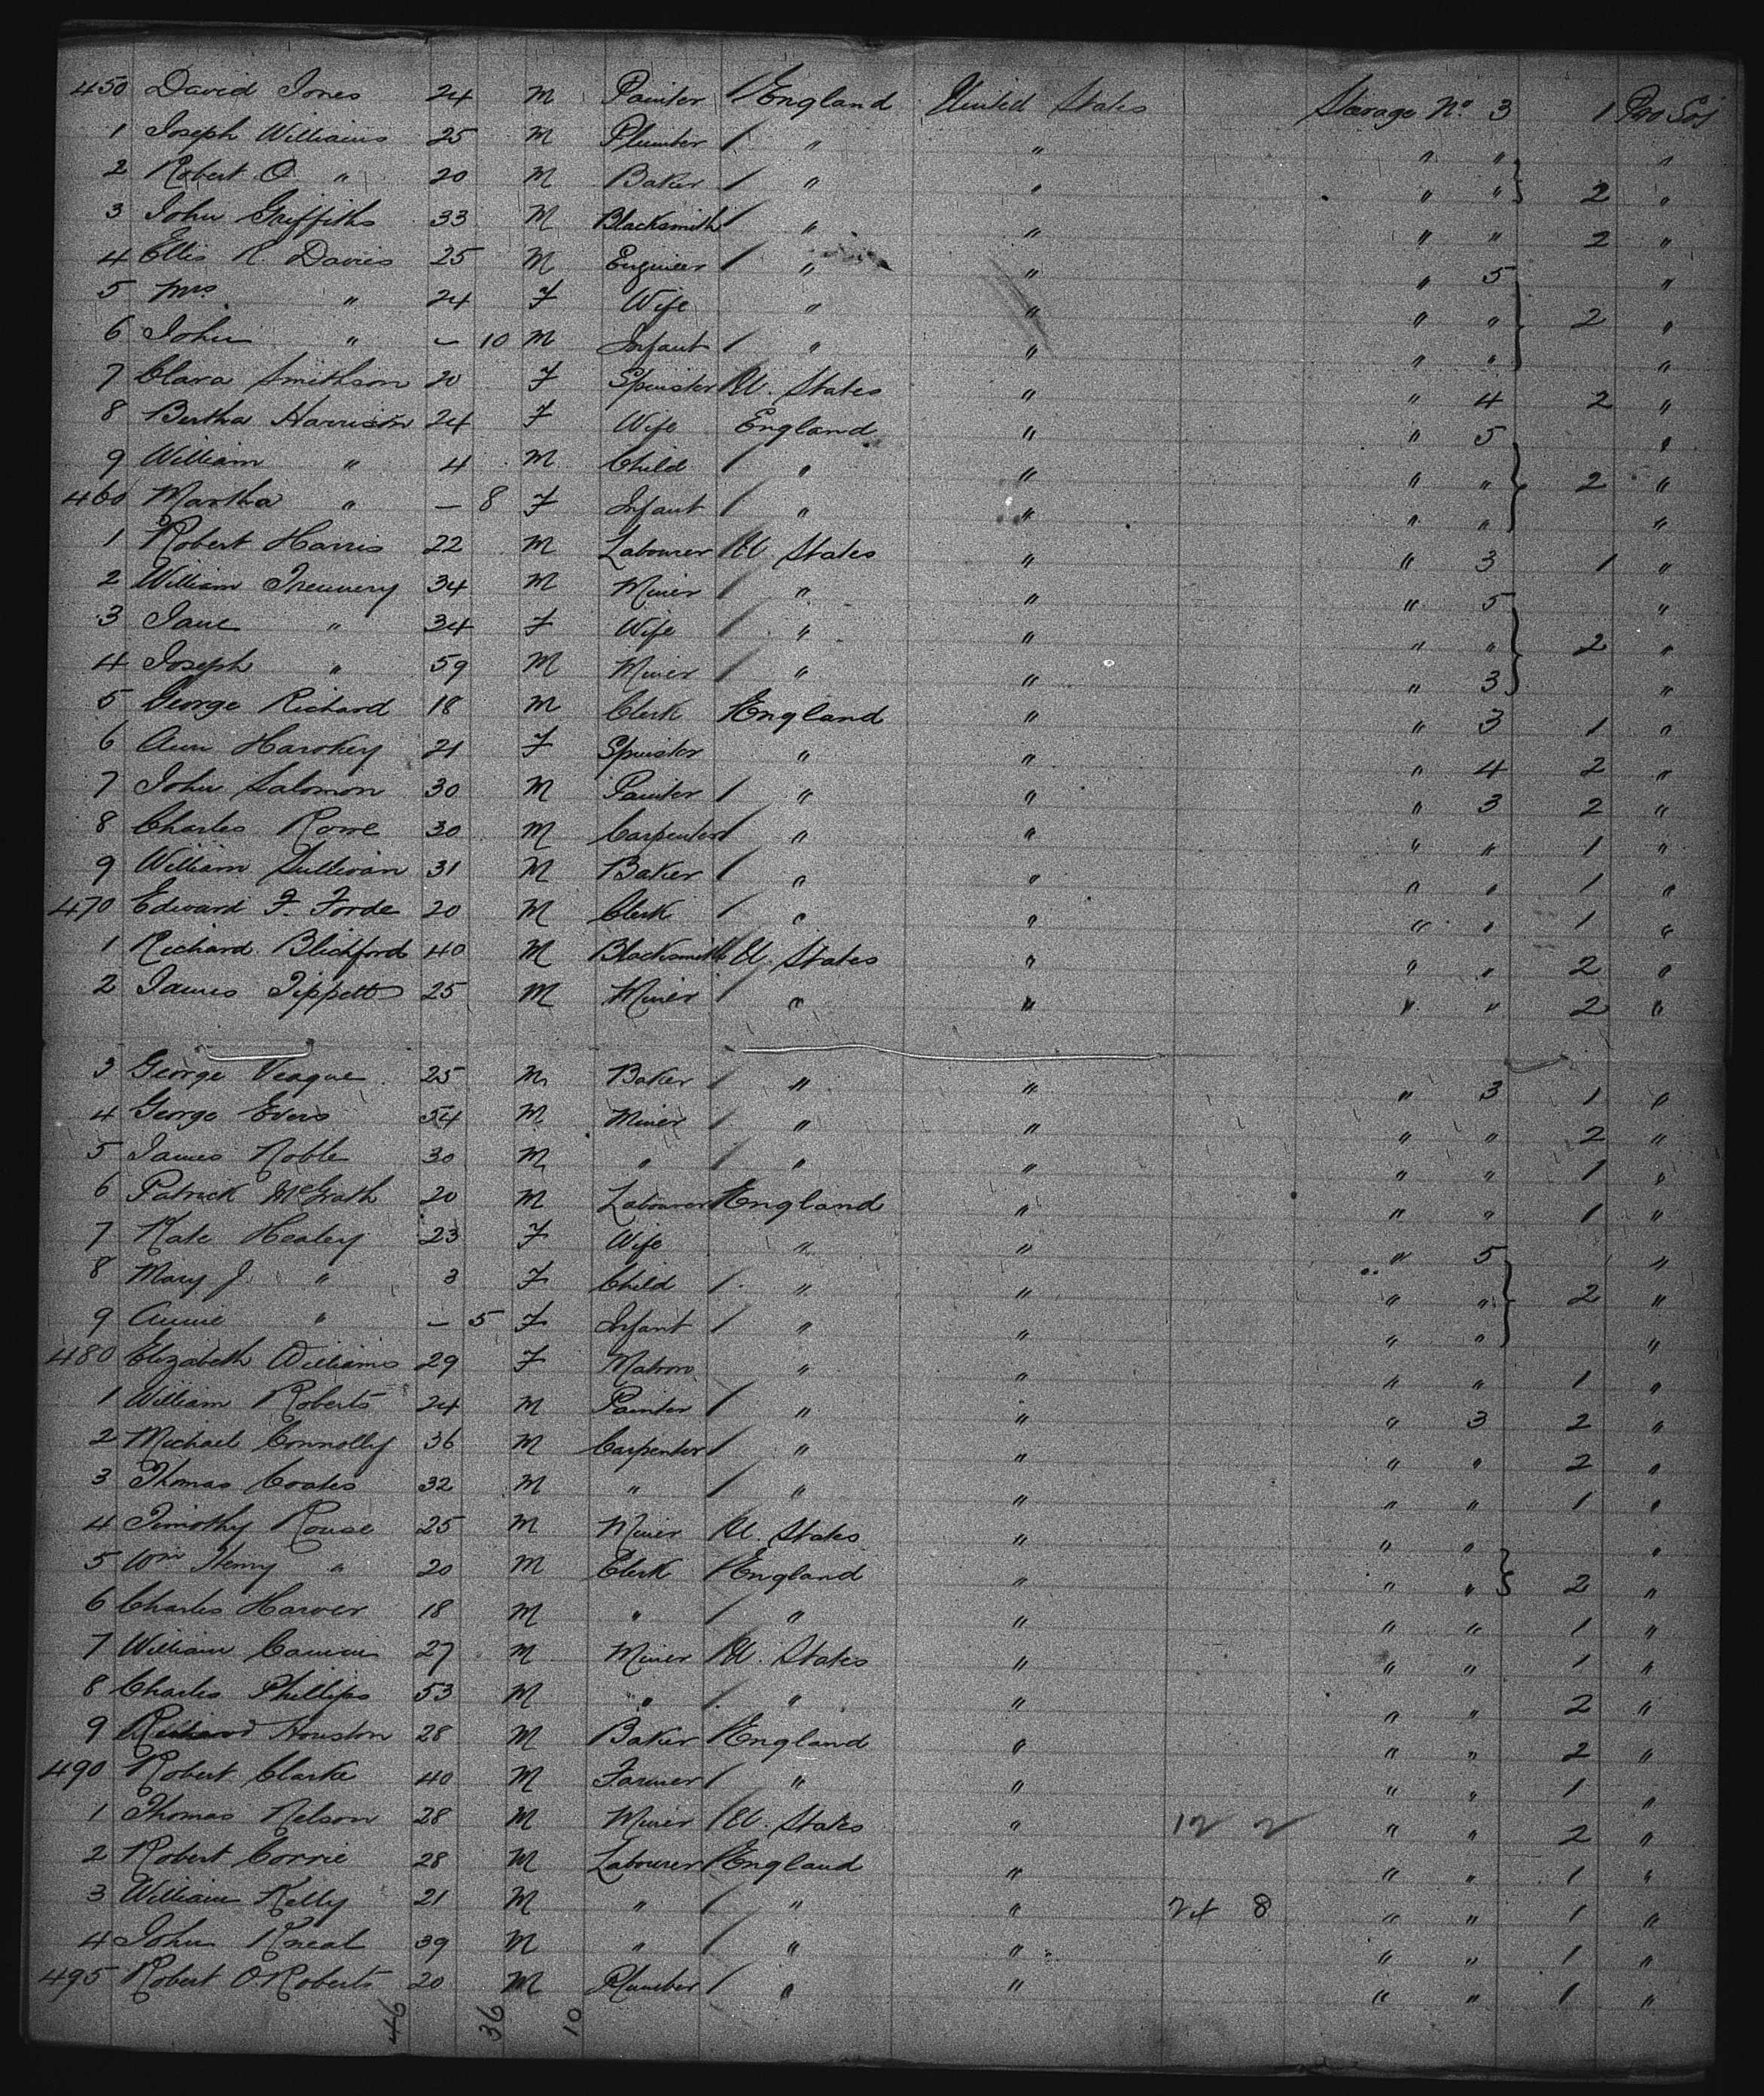 450 David Jones 24 M Painter England United States Steerage No 3 1 Pro Soj
1 Joseph Williams 25 M Plumber " " " " "
2 Robert O " 20 M Baker " " " " } 2 "
3 John Griffiths 33 M Blacksmith " " " " 2 "
4 Ellis R. Davies 25 M Engineer " " " 5 "
5 Mrs " 24 F Wife " " " " } 2 "
6 John " — 10 M Infant " " " " "
7 Clara Smithson 20 F Spinster U. States " " 4 2 "
8 Bertha Harrison 24 F Wife England " " 5 "
9 William " 4 M Child " " " " } 2 "
460 Martha " — 8 F Infant " " " " "
1 Robert Harris 22 M Labourer U. States " " 3 1 "
2 William Treuuery 34 M Miner " " " 5 "
3 Jane " 34 F Wife " " " " } 2 "
4 Joseph " 59 M Miner " " " 3 "
5 George Richard 18 M Clerk England " " 3 1 "
6 Ann 21 F Spinster " " " 4 2 "
7 John Salomon 30 M Painter " " " 3 2 "
8 Charles Rowe 30 M Carpenter " " " " 1 "
9 William Sullivan 31 M Baker " " " " 1 "
470 Edward F. Forde 20 M Clerk " " " " 1 "
1 Richard Blichford 40 M Blacksmith U. States " " " 2 "
2 James Tippett 25 M Miner " " " " 2 "
3 George Veague 25 M Baker " " " 3 1 "
4 George Evers 54 M Miner " " " " 2 "
5 James Noble 30 M " " " " " 1 "
6 Patrick McGrath 20 M Labourer England " " " 1 "
7 Kate Healey 23 F Wife " " " 5 "
8 Mary J. " 3 F Child " " " " } 2 "
9 Annie " — 5 F Infant " " " " "
480 Elizabeth Williams 29 F Matron " " " " 1 "
1 William Roberts 24 M Painter " " " 3 2 "
2 Michael Connolly 36 M Carpenter " " " " 2 "
3 Thomas Coates 32 M " " " " " 1 "
4 Timothy Rouse 25 M Miner U. States " " " "
5 Wm Henry " 20 M Clerk England " " " } 2 "
6 Charles Harver 18 M " " " " " 1 "
7 William 27 M Miner U. States " " " 1 "
8 Charles Phillips 53 M " " " " " 2 "
9 Richard Houston 28 M Baker England " " " 2 "
490 Robert Clarke 40 M Farmer " " " " 1 "
1 Thomas Nelson 28 M Miner U. States " 12 2 " " 2 "
2 Robert Corrie 28 M Labourer England " " " 1 "
3 William Kelly 21 M " " " 24 8 " " 1 "
4 John Kneal 39 M " " " " " 1 "
495 Robert O. Roberts 20 M Plumber " " " " 1 "
46 36 10